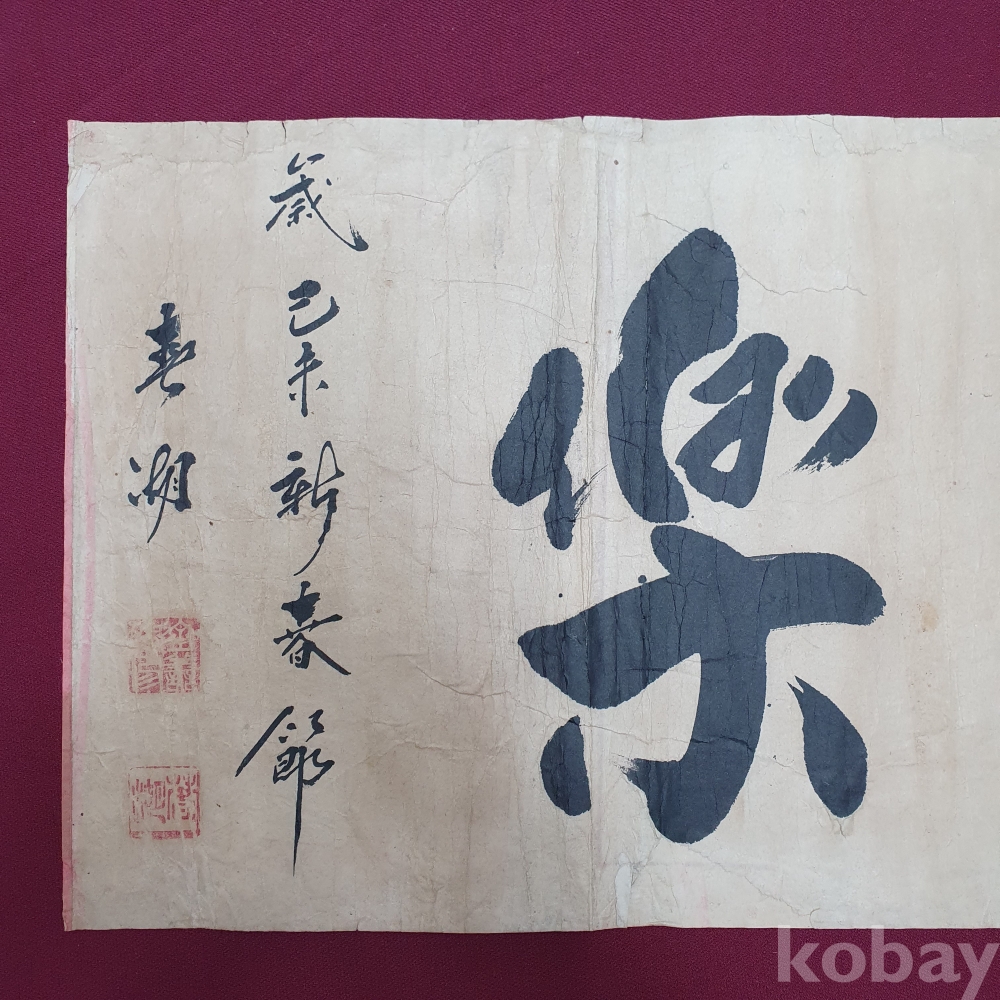 樂
歲己未新春節
春湖
kobay